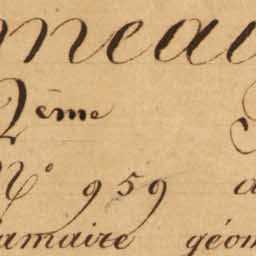 neau
2ème
N° 959
amaire géom